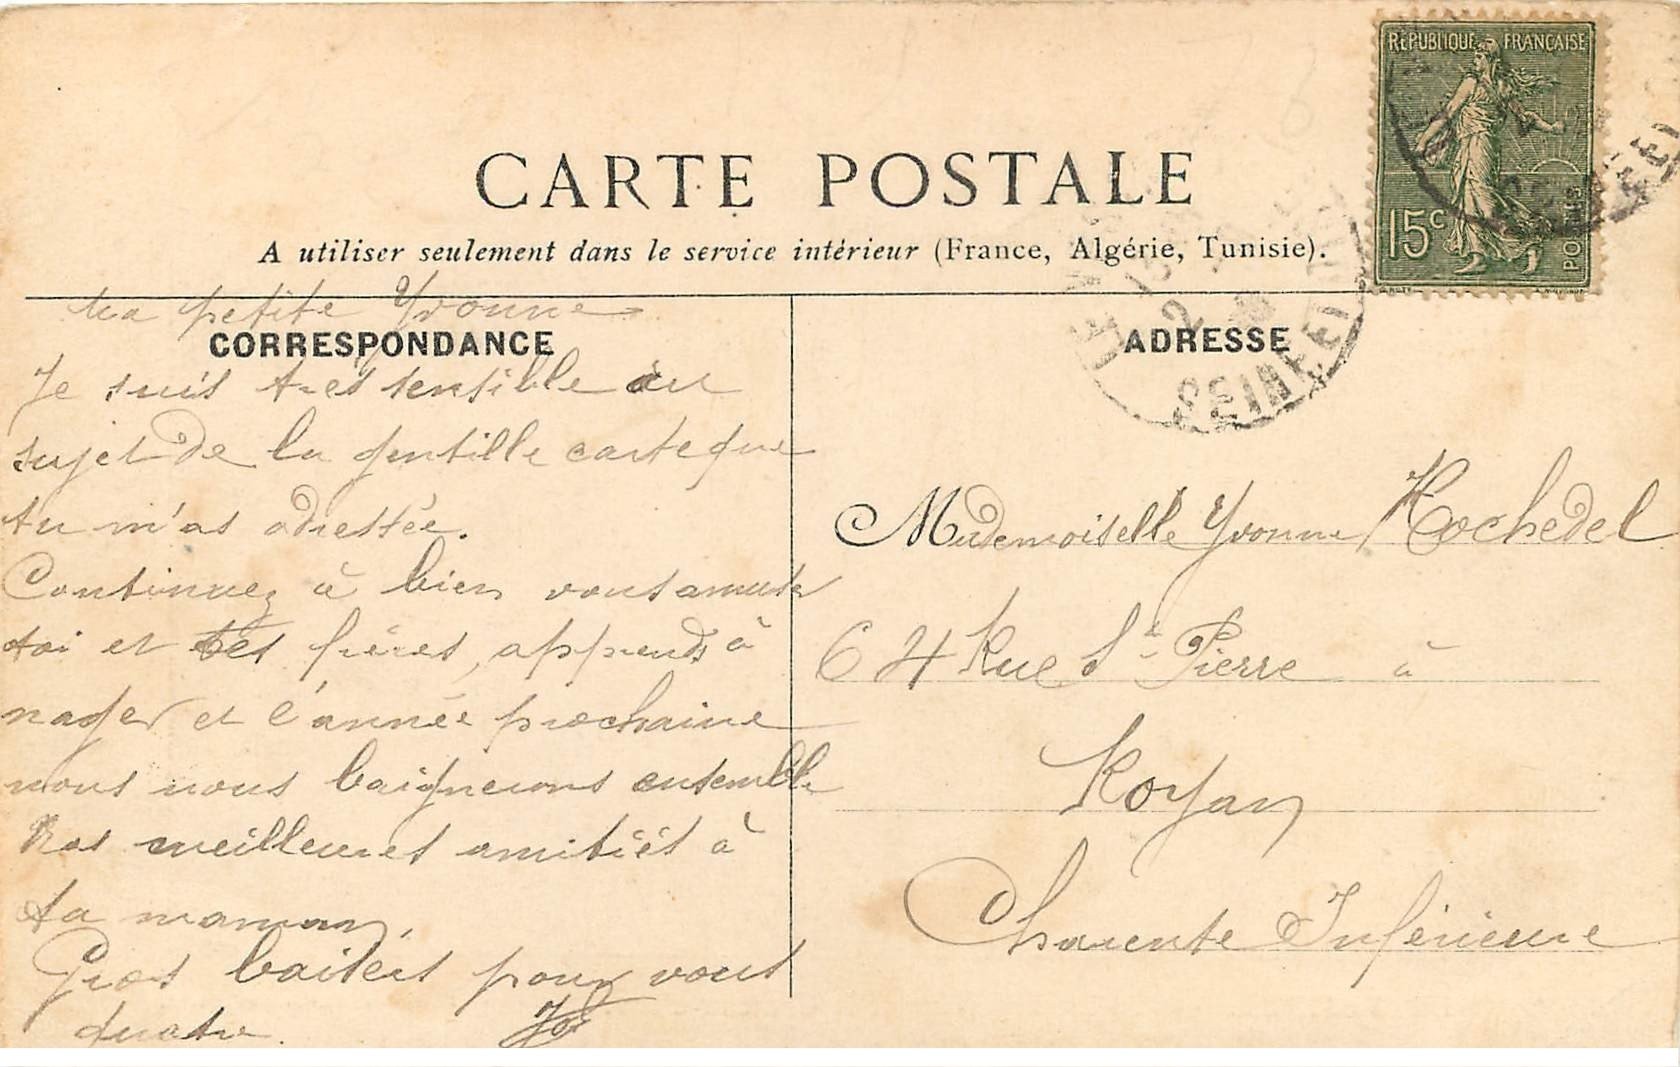 RÉPUBLIQUE FRANÇAISE
15c
POSTES
CARTE POSTALE
A utiliser seulement dans le service intérieur (France, Algérie, Tunisie).
CORRESPONDANCE
ADRESSE
SEINE ET
Ma petite Yvonne
Je suis très sensible au
sujet de la gentille carte que
tu m'as adressée.
Continuez à bien vous amuser
toi et tes frères, apprends à
nager et l'année prochaine
nous nous baignerons ensemble
meilleures amitiés à
ta maman,
Gros baisers pour vous
quatre.
Mademoiselle Yvonne Hochedel
64 Rue St Pierre à
Royan
Charente Inférieure